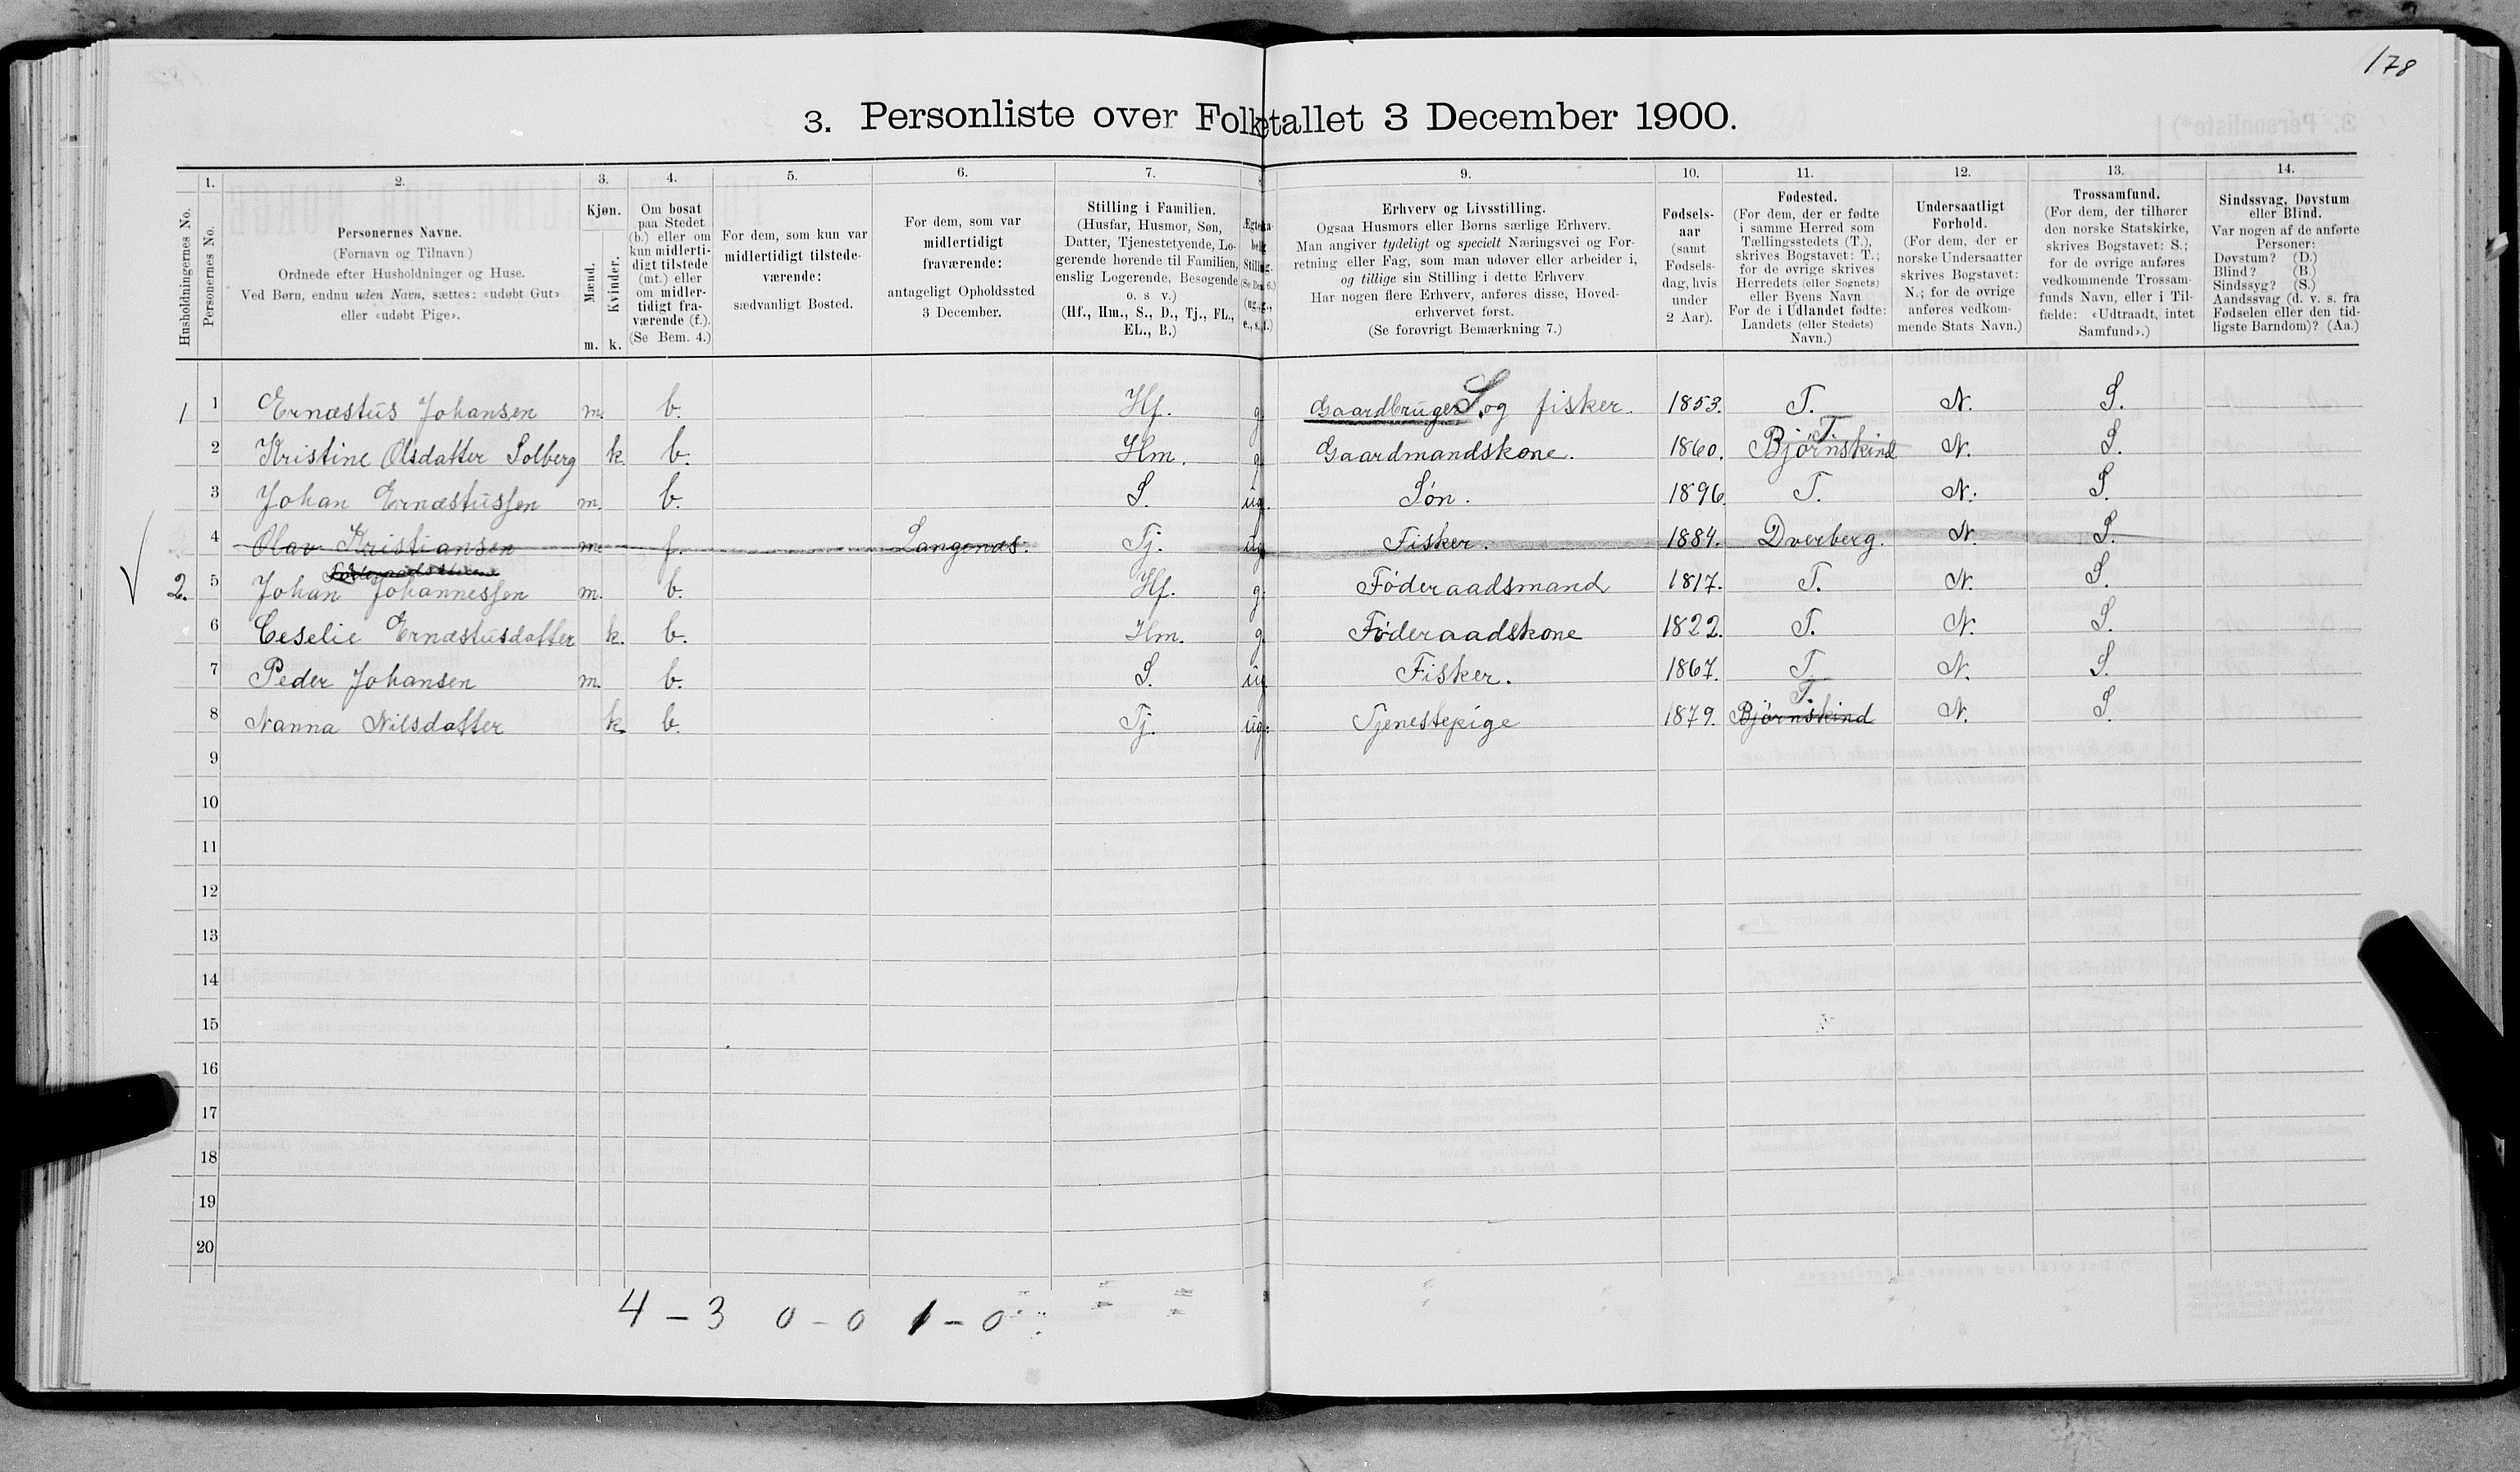 178
3. Personliste over Folketallet 3 December 1900.
1. 2. 3. 4. 5. 6. 7. 8. 9. 10. 11. 12. 13. 14.
Husholdningernes No.
Personernes No.
Personernes Navne.
(Fornavn og Tilnavn)
Ordnede efter Husholdninger og Huse.
Ved Børn, endnu uden Navn, sættes: «udøbt Gut»
eller «udøbt Pige».
Kjøn.
Mænd.
Kvinder.
m. k.
Om bosat
paa Stedet
(b.) eller om
kun midlerti-
digt tilstede
(mt.) eller
om midler-
tidigt fra-
værende (f.).
(Se Bem. 4.)
For dem, som kun var
midlertidigt tilstede-
værende:
sædvanligt Bosted.
For dem, som var
midlertidigt
fraværende:
antageligt Opholdssted
3 December.
Stilling i Familien.
(Husfar, Husmor, Søn,
Datter, Tjenestetyende, Lo-
gerende hørende til Familien,
enslig Logerende, Besøgende
o. s v.)
(Hf., Hm., S., D., Tj., FL.,
EL., B.)
Erhverv og Livsstilling.
Ogsaa Husmors eller Børns særlige Erhverv.
Man angiver tydeligt og specielt Næringsvei og For-
retning eller Fag, som man udøver eller arbeider i,
og tillige sin Stilling i dette Erhverv.
Har nogen flere Erhverv, anføres disse, Hoved-
erhvervet først.
(Se forøvrigt Bemærkning 7.)
Fødsels-
aar
(samt
Fødsels-
dag, hvis
under
2 Aar).
Fødested.
(For dem, der er fødte
i samme Herred som
Tællingsstedets (T.),
skrives Bogstavet: T.;
for de øvrige skrives
Herredets (eller Sognets)
eller Byens Navn
For de i Udlandet fødte:
Landets (eller Stedets)
Navn.)
Undersaatligt
Forhold.
(For dem, der er
norske Undersaatter
skrives Bogstavet:
N.; for de øvrige
anføres vedkom-
mende Stats Navn.)
Trossamfund.
(For dem, der tilhører
den norske Statskirke,
skrives Bogstavet: S.;
for de øvrige anføres
vedkommende Trossam-
funds Navn, eller i Til-
fælde: «Udtraadt, intet
Samfund».)
Sindssvag, Døvstum
eller Blind.
Var nogen af de anførte
Personer:
Døvstum? (D.)
Blind? (B.)
Sindssyg? (S.)
Aandssvag (d. v. s. fra
Fødselen eller den tid-
ligste Barndom)? (Aa.)
1 1 Ernæstus Johansen m. b. Hf. g. Gaardbruger S. og fisker. 1853. T. N. S.
2 Kristine Olsdatter Solberg k. b. Hm. g. Gaardmandskone. 1860. Bjørnskind T. N. S.
3 Johan Ernæstussen m. b. S. ug. Søn. 1896. T. N. S.
4 Olav Kristiansen m. f. Langenæs. Tj. ug. Fisker. 1884. Dverberg. N. S.
2. 5 Johan Johannessen m. b. Hf. g. Føderaadsmand 1817. T. N. S.
6 Ceselie Ernæstusdatter k. b. Hm. g. Føderaadskone 1822. T. N. S.
7 Peder Johansen m. b. S. ug Fisker. 1867. T. N. S.
8 Nanna Nilsdatter k. b. Tj. ug. Tjenestepige 1879. Bjørnskind T. N. S.
9
10
11
12
13
14
15
16
17
18
19
20
4 – 3 0 – 0 1 – 0